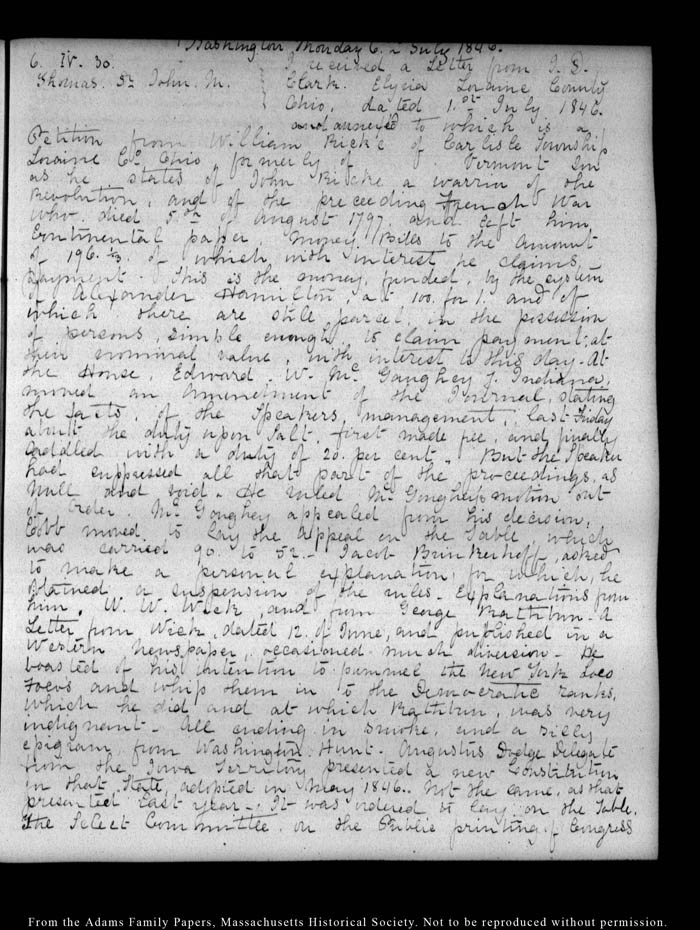 Washington Monday 6. July 1846.
6. IV. 30.
Thomas. Sn John. M.
I received a Letter from I. D.
Clark. Elyria Loraine County
Ohio, dated 1.st July 1846.
and annexed to which is a
Petition from William Ricke of Carlisle Township
Loraine Co. Ohio, formerly of Vermont Son
as he states of John Ricke a warrior of the
Revolution, and of the preceeding French War
who died 5.th of August 1797 and left him
Continental paper, Money Bills to the amount
of 196. of which, with interest he claims
payment. This is the money, funded, by the system
of Alexander Hamilton, at 100. for 1. and of
which there are still parcels in the possession
of persons, simple enough, to claim payment, at
their nominal value, with interest to this day. At
the House, Edward. W. McGaughey of Indiana,
moved an amendment of the Journal, stating
the facts, of the Speakers, management, last Friday
about the duty upon Salt, first made free, and finally
saddled with a duty of 20. per cent. But the Speaker
had suppressed all that part of the proceedings, as
Null and void. He ruled McGaughey's motion out
of Order. McGaughey appealed from his decision,
Cobb moved to lay the appeal on the Table, which
was carried 90. to 52. Jacob Brinkerhoff, asked
to make a personal explanation, for which, he
obtained a suspension of the rules. Explanations from
him, W. W. Wick, and from George Rathbun. A
Letter from Wick, dated 12. of June, and published in a
Western newspaper, occasioned much diversion. He
boasted of his intention to pummel the New York Loco
Foco's and whip them in to the Democratic ranks,
which he did and at which Rathbun, was very
indignant. All ending in smoke, and a silly
epigram from Washington Hunt. Augustus Dodge Delegate
from the Iowa Territory presented a new Constitution
for that State, adopted in May 1846. Not the same, as that
presented last year. It was ordered to lay on the Table.
The Select Committee, on the Public printing of Congress
From the Adams Family Papers, Massachusetts Historical Society. Not to be reproduced without permission.